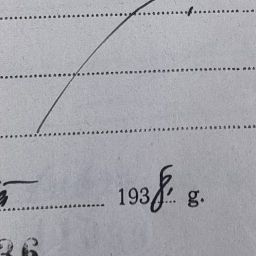 1938. g.
36